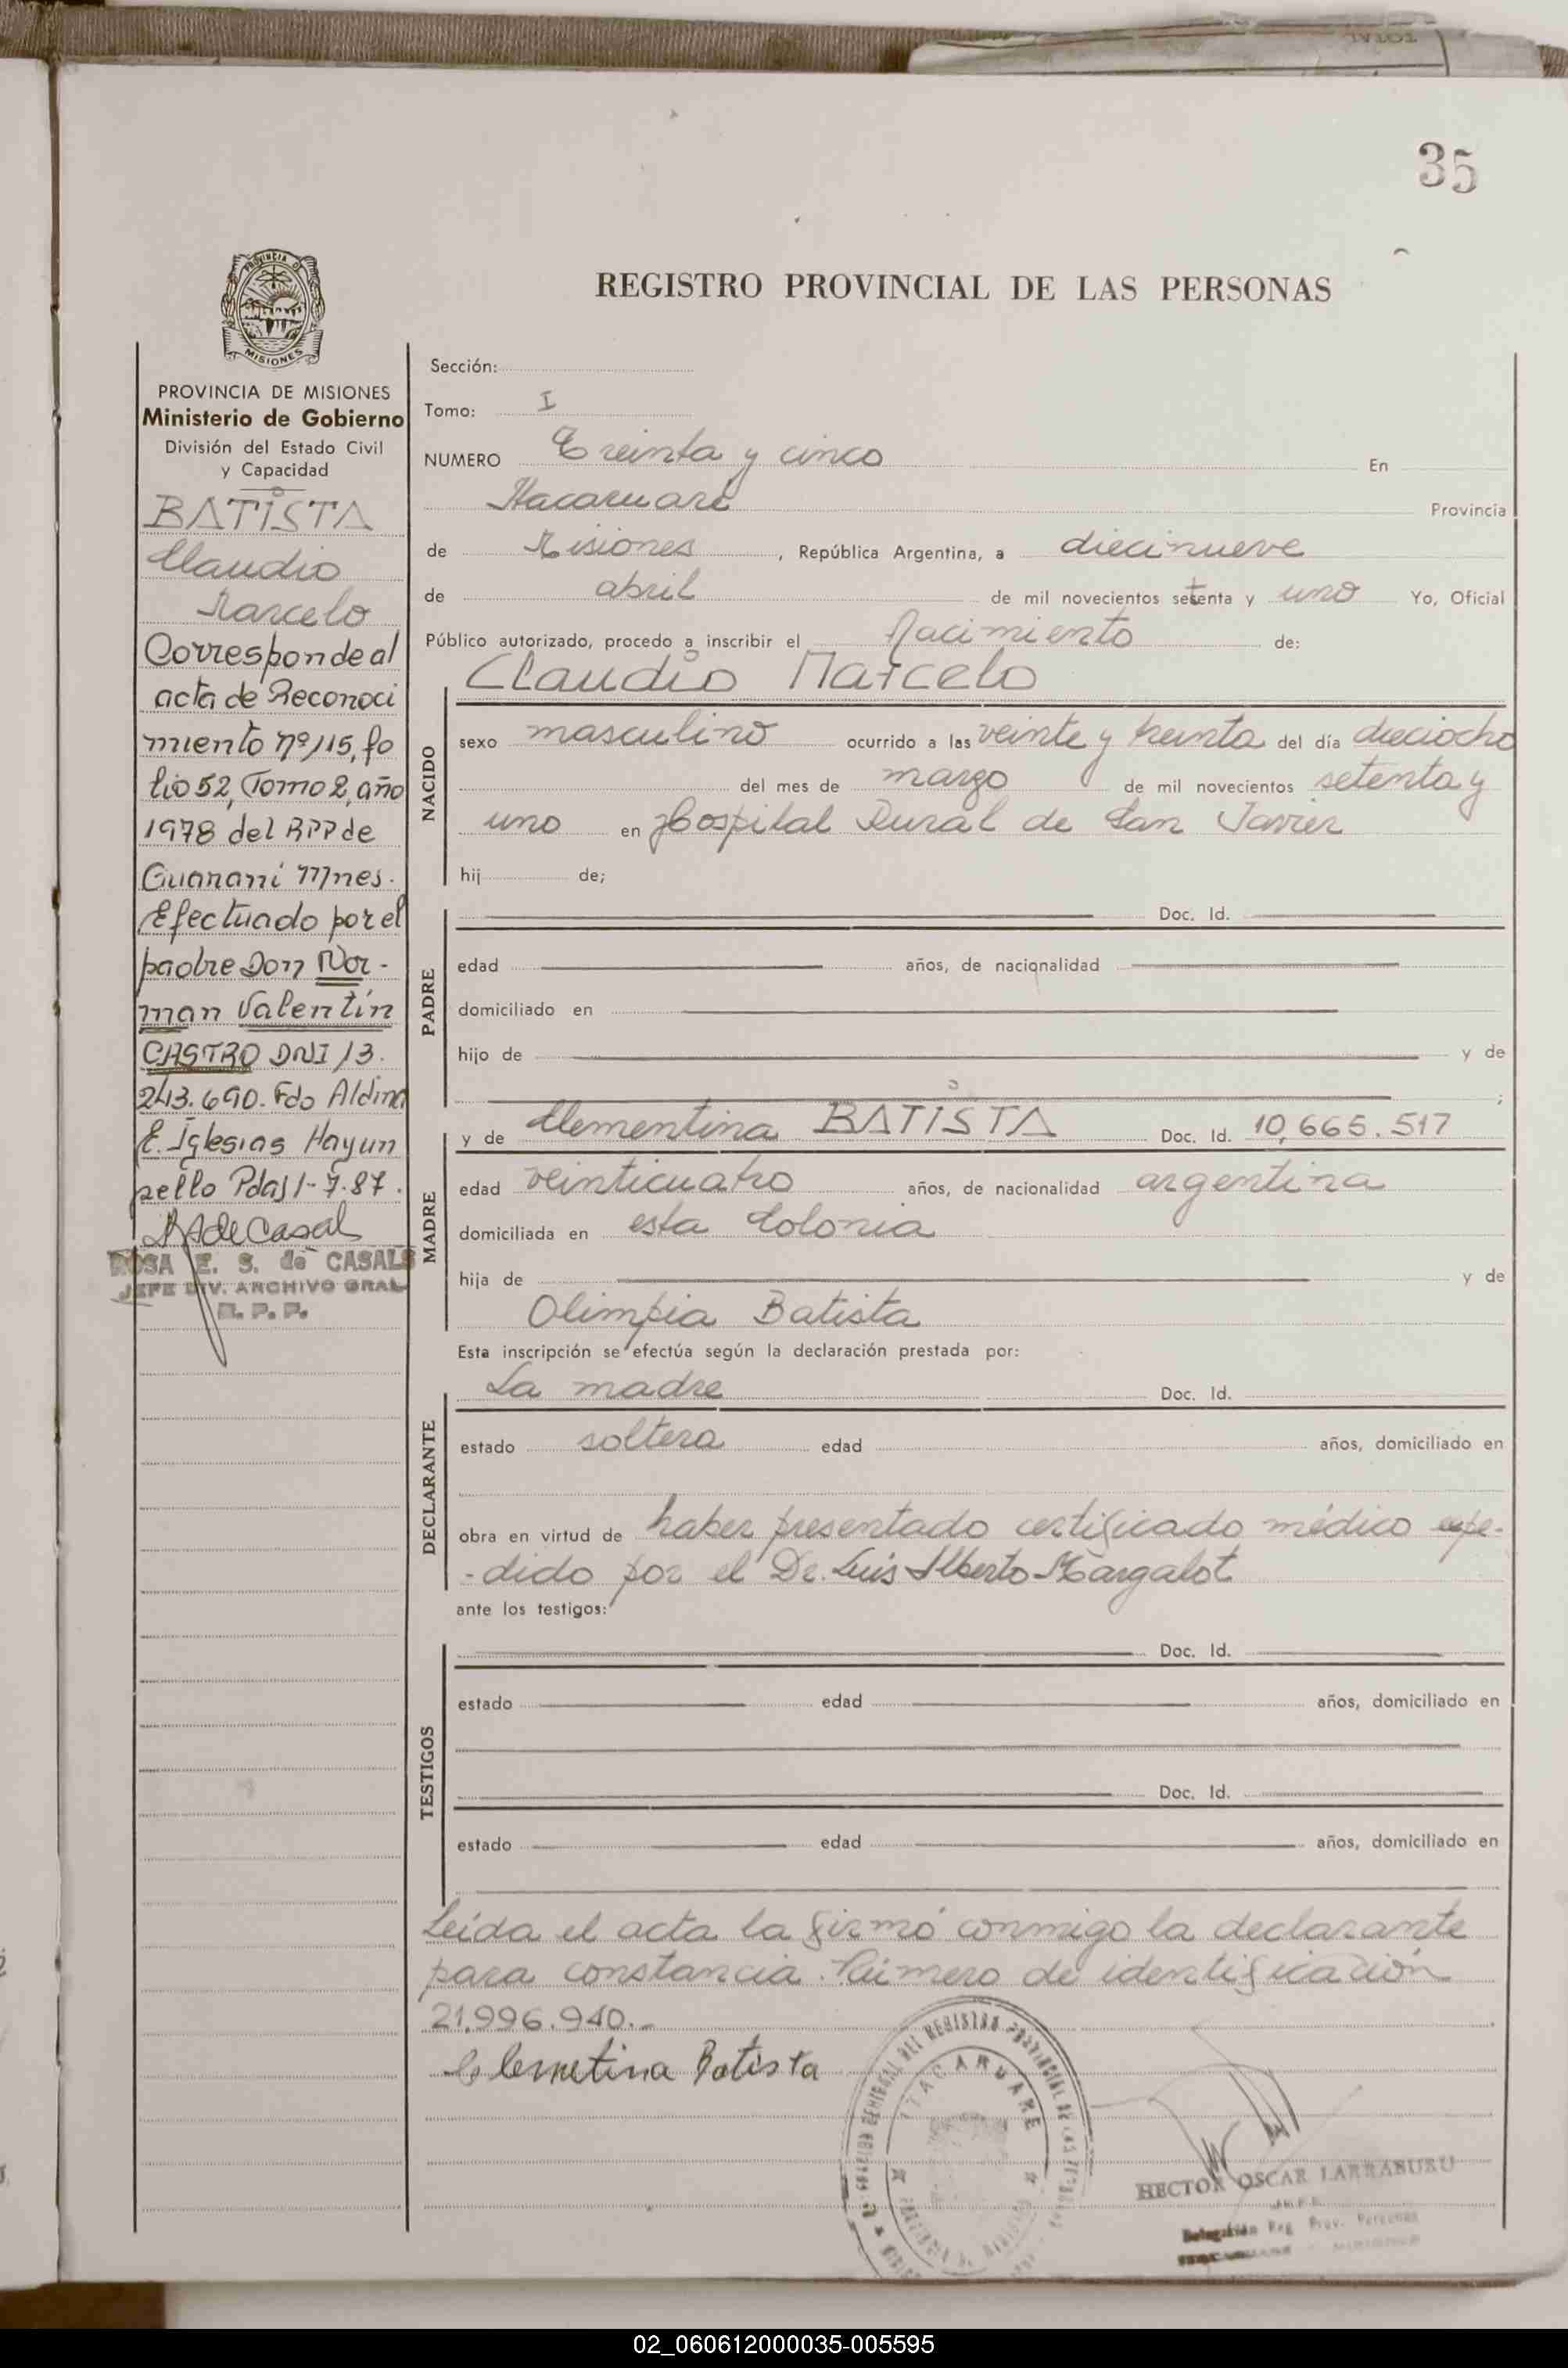 35
REGISTRO PROVINCIAL DE LAS PERSONAS
PROVINCIA DE
MISIONES
PROVINCIA DE MISIONES
Ministerio de Gobierno
División del Estado Civil
y Capacidad
BATISTA
Claudio
Marcelo
Corresponde al
acta de Reconoci
miento nº 115, fo
lio 52, Tomo 2, año
1978 del RPP de
Guaraní Mnes.
Efectuado por el
padre Don Nor-
man Valentín
CASTRO DNI 13.
243.690. Fdo Aldina
E. Iglesias Hayun
pello Pdas 1-7-87.
RAdeCasal
ROSA E. S. de CASALS
JEFE DIV. ARCHIVO GRAL
R. P. P.
Sección:
Tomo: I
NUMERO Treinta y cinco En
Itacaruaré Provincia
de Misiones, República Argentina, a diecinueve
de abril de mil novecientos setenta y uno Yo, Oficial
Público autorizado, procedo a inscribir el Nacimiento de:
NACIDO
Claudio Marcelo
sexo masculino ocurrido a las veinte y treinta del día dieciocho
del mes de marzo de mil novecientos setenta y
uno en Hospital Rural de San Javier
hij de;
PADRE
Doc. Id.
edad años, de nacionalidad
domiciliado en
hijo de y de
;
MADRE
y de Clementina BATISTA Doc. Id. 10,665.517
edad veinticuatro años, de nacionalidad argentina
domiciliada en esta Colonia
hija de y de
Olimpia Batista
Esta inscripción se efectúa según la declaración prestada por:
DECLARANTE
La madre Doc. Id.
estado soltera edad años, domiciliado en
obra en virtud de haber presentado certificado médico expe-
-dido por el Dr. Luis Alberto Margalot
ante los testigos:
TESTIGOS
Doc. Id.
estado edad años, domiciliado en
Doc. Id.
estado edad años, domiciliado en
Leída el acta la firmó conmigo la declarante
para constancia. Número de identificación
21.996.940.-
Clemetina Batista
ITACARUARE
HECTOR OSCAR LARRABURU
JEFE
Delegación Reg. Prov. Personas
02_060612000035-005595